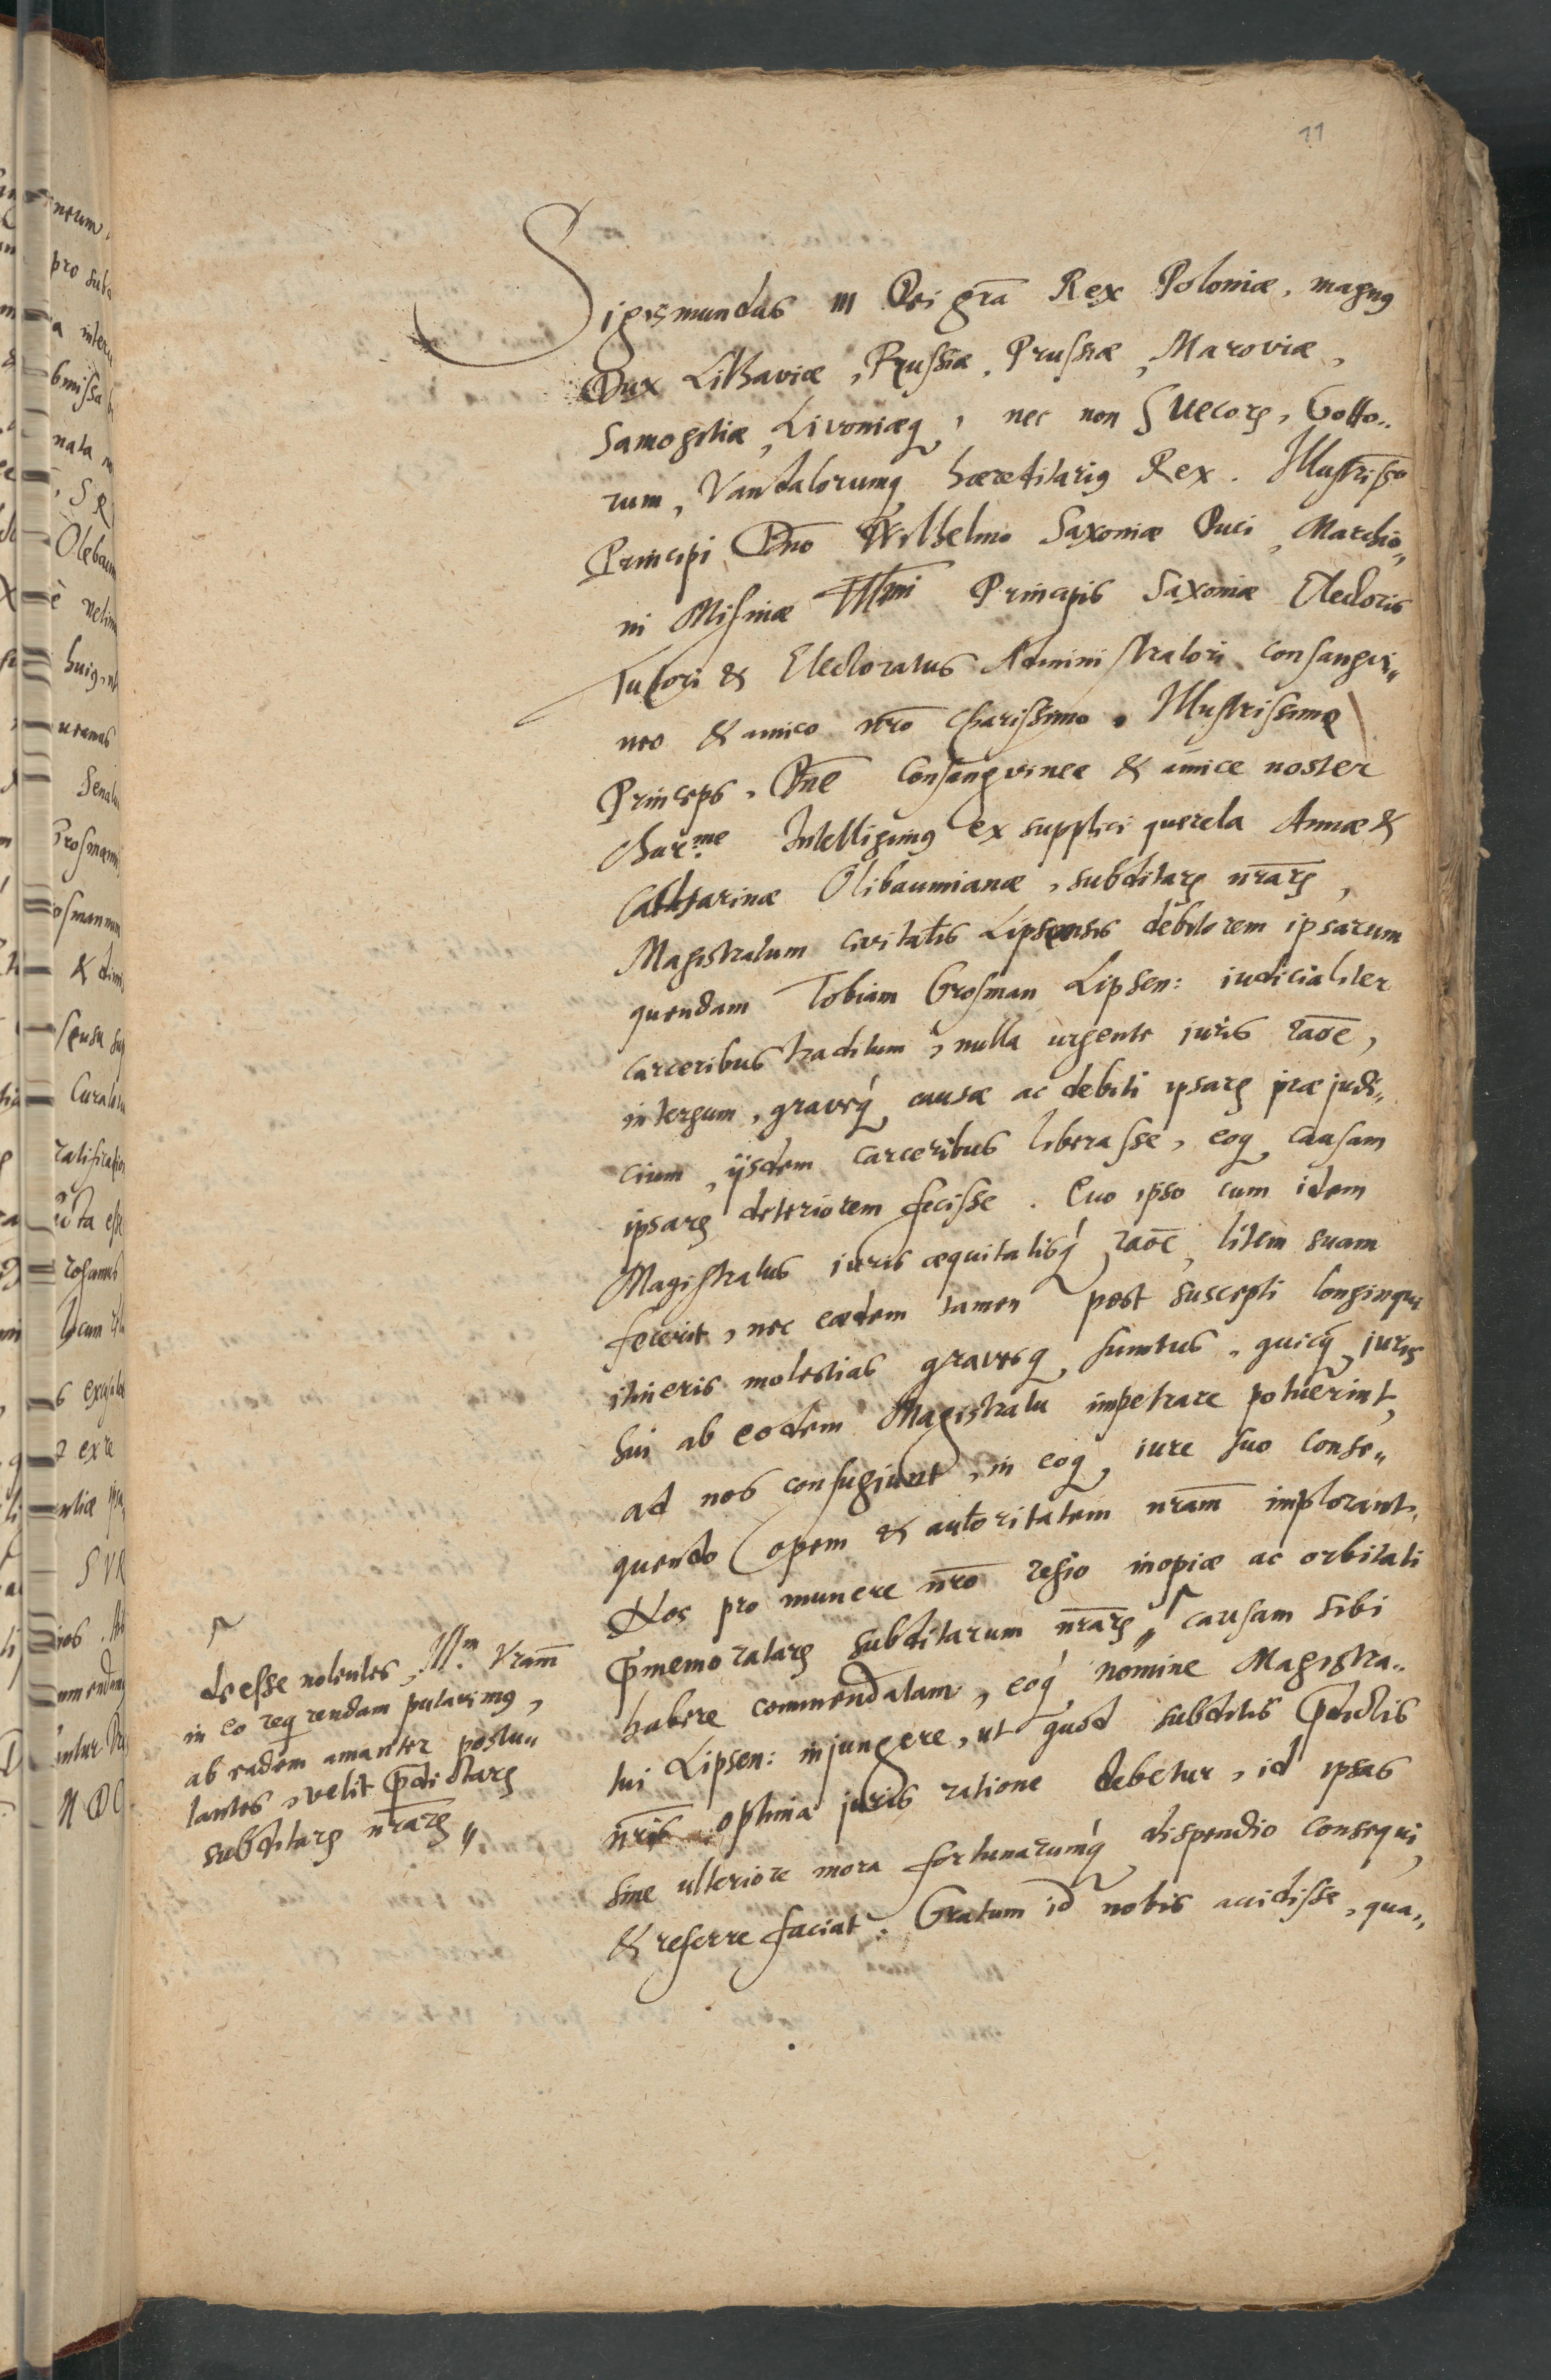 11
Sigismundus III Dei grā Rex Poloniæ, magnꝰ
Dux Lithaviæ, Russiæ, Prussiæ, Maroviæ,
Samogitiæ, Livoniæq̃, nec non Suecorꝝ, Gotto„
rum, Vandalorumq̃ hæreditariꝰ Rex. Illustrisso
Principi Dno Wilhelmo Saxoniæ Duci, Marchio„
ni Misniæ Illmi Principis Saxoniæ Electoris
Tutori & Electoratus Administratori consangvi„
neo & amico nr̄o charissimo. Illustrissime
Princeps, Dn̄e Consangvinee & amice noster
char.me Intelligimꝰ ex supplici querela Annæ &
Catharinæ Olibaumianæ, subditarꝝ nr̄arꝝ,
Magistratum civitatis Lipsensis debitorem ipsarum
quendam Tobiam Grosman Lipsen: iudicialiter
carceribus traditum, nulla urgente juris rāoe,
in tergum, graveq́ causæ ac debiti ipsarꝝ præjudi„
cium, ijsdem carceribus liberasse, eoq̃ causam
ipsarꝝ deteriorem fecisse. Quo ipso cum idem
Magistratus iuris æquitatisq́ rāoe, litem suam
fecerit, nec eædem tamen post suscepti longinqui
itineris molestias gravesq̃ sumtus, quicq̃ juris
sui ab eodem Magistratu impetrare potuerint,
ad nos confugiunt, in eoq̃ iure suo conse„
quendo opem & autoritatem nr̄am implorant.
Nos pro munere nr̄o regio inopiæ ac orbitati
p̄memoratarꝝ subditarum nr̄arꝝ „ causam sibi
habere commendatam, eoq́ nomine Magistra„
tui Lipsen: injungere, ut quod subditis p̄dictis
nr̄is optima juris ratione debetur, id ipsas
sine ulteriore mora fortunarumq́ dispendio consequi,
& referre faciat. Gratum id nobis accidisse, qua„
deesse nolentes, Ill.m Vram̄
in eo reqꝫrendam putavimꝰ,
ab eadem amanter postu„
lantes, velit p̄dictarꝝ
subditarꝝ nr̄arꝝ „